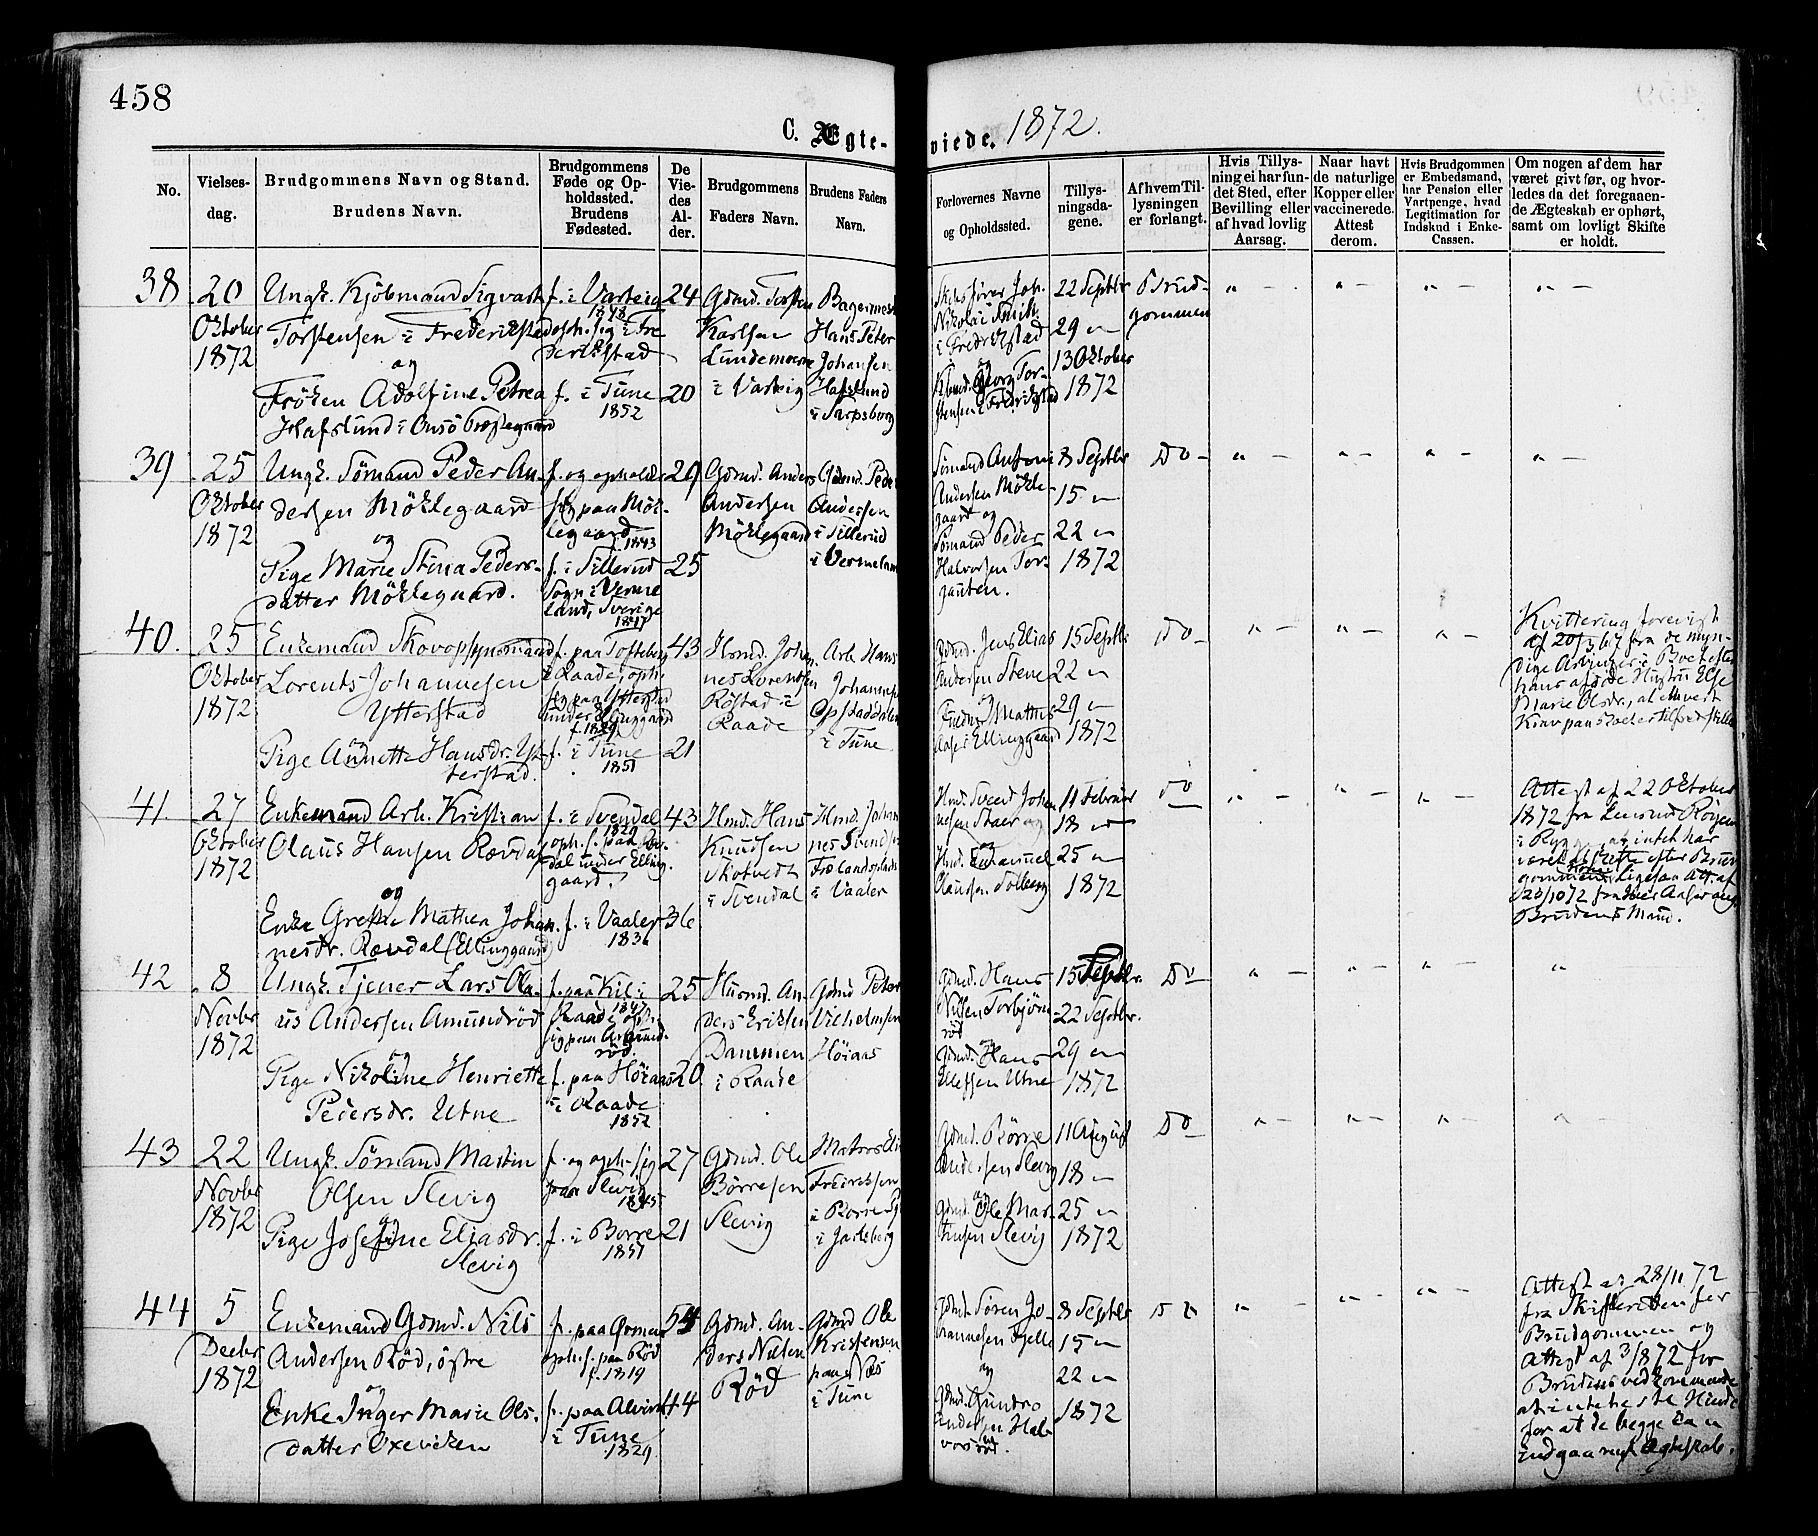 458
C. Ægteviede. 1872.
No.
Vielsesdag.
Brudgommens Navn og Stand.
Brudens Navn.
Brudgommens Føde og Opholdssted. Brudens Fødested.
De Viedes Alder.
Brudgommens Faders Navn.
Brudens Faders Navn.
Forlovernes Navne og Opholdssted.
Tillysningsdagene.
Af hvem Tillysningen er forlangt.
Hvis Tillysning ei har fundet Sted, efter Bevilling eller af hvad lovlig Aarsag.
Naar havt de naturlige Kopper eller vaccinerede. Attest derom.
Hvis Brudgommen er Embedsmand, har Pension eller Vartpenge, hvad Legitimation for Indskud i Enke-Cassen.
Om nogen af dem har været givt før, og hvorledes da det foregaaende Ægteskab er ophørt, samt om lovligt Skifte er holdt.
38
20
Oktober
1872
Ungk. Kjöbmand Sigvart
Torstensen i Frederikstad
og
Fröken Adolfine Petrea
Hafslund i Onsö Præstegaard
f. i Varteig
1848
oph. sig i Fre
derikstad
f. i Tune
1852
24
20
Gdmd. Torsten
Karlsen
Lundemoen
i Varteig
Bagermest
Hans Peter
Johansen
Hafslund
i Sarpsborg
Joh.
Nikolai
i Fredrikstad
og
Georg Tor-
stensen i Fredrikstad
22 Septbr
29 "
13 Oktober
1872
Brud-
gommen
39
25
Oktober
1872
Ungk. Sömand Peder An-
dersen Möklegaard
og
Pige Marie Stina Peders-
datter Möklegaard.
f. og opholder
sig paa Mök-
legaard
f. 1843
f. i Sillerud
Sogn i Verme
land, Sverige
1847
29
25
Gdmd. Anders
Andersen
Möklegaard
Gdmd. Peder
Andersen
i Sillerud
i Vermeland
Sömand Anton
Andersen Mökle-
gaard og
Sömand Peder
Halvorsen Tor-
gauten.
8 Septbr
15 "
22 "
1872
Do -
40.
25
Oktober
1872
Enkemand Skovopsynsmand
Lorents Johannesen
Ytterstad
og
Pige Annette Hansdr. Yt-
terstad.
f. paa Tofteberg
i Raade, oph.
sig paa Ytterstad
under Elinggaard
f. 1829
f. i Tune
1851
43
21
Hsmd. Johan
nes Lorentsen
Röstad i
Raade
Arb. Hans
Johannesen
Opstaddalen
i Tune
Gdmd. Jens Elias
Andersen Stene
Mathis
Aase Ellinggaard
15 Septbr
22 "
29 "
1872
Do -
Kvittering forevist
af 20/3 67 fra de myn-
dige Arvinger i Boet efter
hans afdöde Hustru Else
Marie Olsdr., at ethvert
Krav paa Skifte er tilfredsstillet
41.
27
Oktober
1872
Enkemand Arb. Kristian
Olaus Hansen Rævdal
og
Enke Grethe Mathea Johan-
nesdr. Rævdal (Ellinggaard)
f. i Svendal
1829
oph. s. paa Ræv-
dal under Elling-
gaard.
f. i Vaaler
1836
43
36
Hmd. Hans
Knudsen
Skotvedt
i Svendal
Hmd. Johan
nes Svendsen
i Vaaler
Hmd. Svend Johan
nesen Staer og
Hmd. Emanuel
Olaussen Solberg
11 Februar
18 "
25 "
1872
Do
Attest af 22 Oktober
1872 fra Lensmd
i Rygge, at intet har
været at skifte efter Brud
gommens Ligesaa Att. af
20/10 72 fra
Brudens Mand.
42
8
Novbr
1872
Ungk. Tjener Lars Ola-
us Andersen Amundröd
og
Pige Nikoline Henriette
Pedersdr. Utne
f. paa Kil i
Raade 1847 oph.
sig paa Amund-
röd.
f. paa Höiaas
i Raade
1852
25
20
Husmd. An-
ders Eriksen
Dammen
i Raade
Gdmd Peter
Vilhelmsen
Höiaas
Gdmd. Hans
Nilsen Torbjörn-
röd
og
Gdmd. Hans
Ellefsen Utne
15 Septbr.
22 Septbr.
29 "
1872
Do
43
22
Novbr
1872
Ungk. Sömand Martin
Olsen Slevig
og
Pige Josefine Eliasdr.
Slevig
f. og oph. sig
paa Slevig
1845
f. i Borre
1851
27
21
Gdmd. Ole
Börresen
Slevig
Matros Eli
Fredriksen
i Borre
i Jarlsberg
Gdmd. Börre
Andersen Slevig
og
Gdmd. Ole Mar-
tinsen Slevig
11 August
18 "
25 "
1872
Do
44
5
Decbr
1872
Enkemand Gdmd. Nils
Andersen Röd, östre
og
Enke Inger Marie Ols-
datter Oxeviken
f. paa
oph. s. paa Röd
f. 1819
f. paa Alvim
i Tune
1829
54
44
Gdmd. An-
ders Nilsen
Röd
Gdmd Ole
Kristensen
paa Næs
i Tune
Gdmd. Sören Jo-
hannesen Fjelle
og
Gdmd. Gundro
Andersen Hal-
vorsröd.
8 Septbr
15 "
22 "
1872
Do
Attest af 28/11 72
fra Skifteretten for
Brudgommen og
Attest af 3/8 72 for
Brudens vedkommende
at intet er til Hinder
for at de begge kan
indgaa nyt Ægteskab.